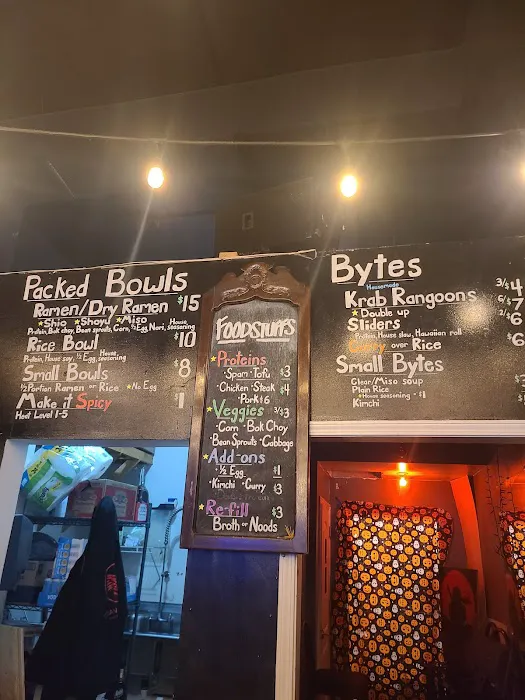 Packed Bowls
Ramen/Dry Ramen $15
★Shio ★Shoyu ★Miso House
Protein, Bok choy, Bean sprouts, Corn, ½ Egg, Nori, seasoning
Rice Bowl $10
Protein, House soy, ½ Egg, House seasoning
Small Bowls $8
½ Portion Ramen or Rice ★No Egg
Make it Spicy $1
Heat Level 1-5
FOODSTUFFS
★Proteins
·Spam·Tofu $3
·Chicken·Steak $4
·Pork $6
★Veggies 3/$3
·Corn ·Bok Choy
·Bean Sprouts ·Cabbage
★Add-ons
·½ Egg $1
·Kimchi ·Curry $3
★Re-fill $3
Broth or Noods
Bytes
Housemade
Krab Rangoons 3/$4
★Double up 6/$7
Sliders 2/$6
Protein, House slaw, Hawaiian roll
Curry over Rice $6
Small Bytes
Clear/Miso soup
Plain Rice
★House seasoning +$1
Kimchi